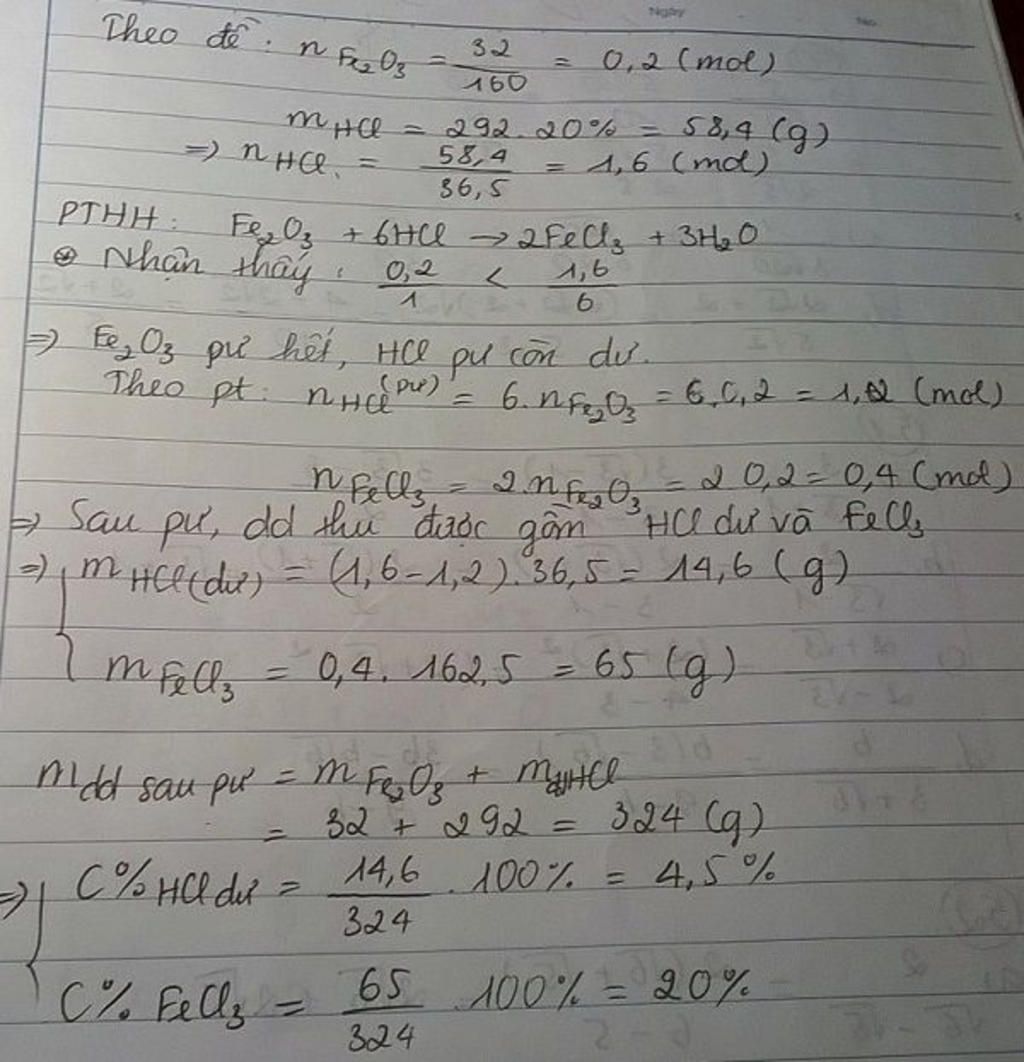 Ngày No.
Theo đề: n Fe₂O₃ = 32/160 = 0,2 (mol)
m HCl = 292.20% = 58,4 (g)
=> n HCl = 58,4/36,5 = 1,6 (mol)
PTHH: Fe₂O₃ + 6HCl → 2FeCl₃ + 3H₂O
Nhận thấy: 0,2/1 < 1,6/6
=> Fe₂O₃ pư hết, HCl pư còn dư.
Theo pt: n HCl (pư) = 6.n Fe₂O₃ = 6.0,2 = 1,2 (mol)
n FeCl₃ = 2.n Fe₂O₃ = 2 0,2 = 0,4 (mol)
=> Sau pư, dd thu được gồm HCl dư và FeCl₃
=> { m HCl(dư) = (1,6-1,2).36,5 = 14,6 (g)
m FeCl₃ = 0,4. 162,5 = 65 (g)
m dd sau pư = m Fe₂O₃ + m ddHCl
= 32 + 292 = 324 (g)
=> { C% HCl dư = 14,6/324 . 100% = 4,5%
C% FeCl₃ = 65/324 .100% = 20%